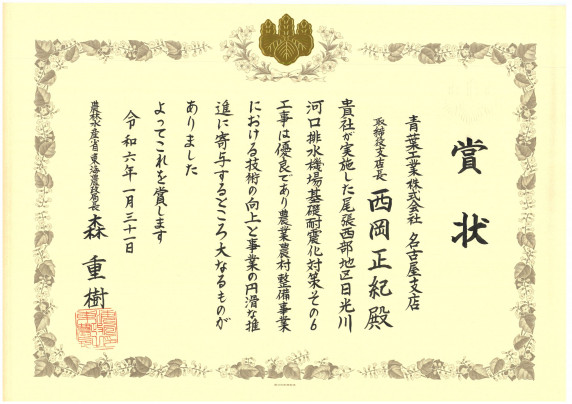 賞状
青葉工業株式会社 名古屋支店
取締役支店長 西岡正紀殿
貴社が実施した尾張西部地区日光川
河口排水機場基礎耐震化対策その6
工事は優良であり農業農村整備事業
における技術の向上と事業の円滑な推
進に寄与するところ大なるものが
ありました
よってこれを賞します
令和六年一月三十一日
農林水産省東海農政局長 森重樹